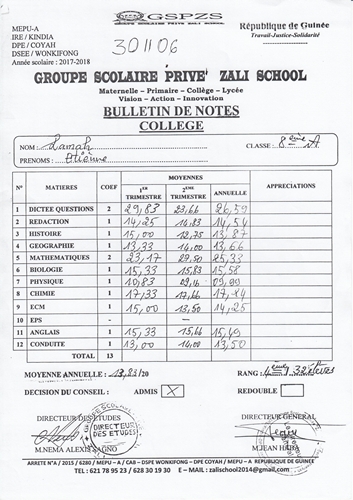 MEPU-A
IRE / KINDIA
DPE / COYAH
DSEE / WONKIFONG
Année scolaire : 2017-2018
GSPZS
République de Guinée
Travail-Justice-Solidarité
301106
GROUPE SCOLAIRE PRIVE' ZALI SCHOOL
Maternelle – Primaire – Collège – Lycée
Vision – Action – Innovation
BULLETIN DE NOTES
COLLEGE
NOM : Lamah CLASSE : 8ème A
PRENOMS : Etienne
N° MATIERES COEF MOYENNES APPRECIATIONS
1ER TRIMESTRE 2EME TRIMESTRE ANNUELLE
1 DICTEE QUESTIONS 2 29,83 23,66 26,59
2 REDACTION 1 14,25 14,83 14,54
3 HISTOIRE 1 15,00 12,75 13,87
4 GEOGRAPHIE 1 13,33 14,00 13,66
5 MATHEMATIQUES 2 23,17 27,50 25,33
6 BIOLOGIE 1 15,33 15,83 15,58
7 PHYSIQUE 1 10,83 09,16 09,99
8 CHIMIE 1 17,33 17,66 17,14
9 ECM 1 15,00 13,50 14,25
10 EPS - - - -
11 ANGLAIS 1 15,33 15,66 15,49
12 CONDUITE 1 13,00 14,00 13,50
TOTAL 13
MOYENNE ANNUELLE : 13,83/20 RANG : 4ème/32 élèves
DECISION DU CONSEIL : ADMIS X REDOUBLE
DIRECTEUR DES ETUDES DIRECTEUR GENERAL
DIRECTEUR DES ETUDES
M.NEMA ALEXIS SAGNO M.JEAN
ARRETE N°A / 2015 / 6280 / MEPU – A / CAB – DSPE WONKIFONG - DPE COYAH / MEPU – A REPUBLIQUE DE GUINEE
TEL : 621 78 95 23 / 628 30 19 30 E – MAIL : zalischool2014@gmail.com